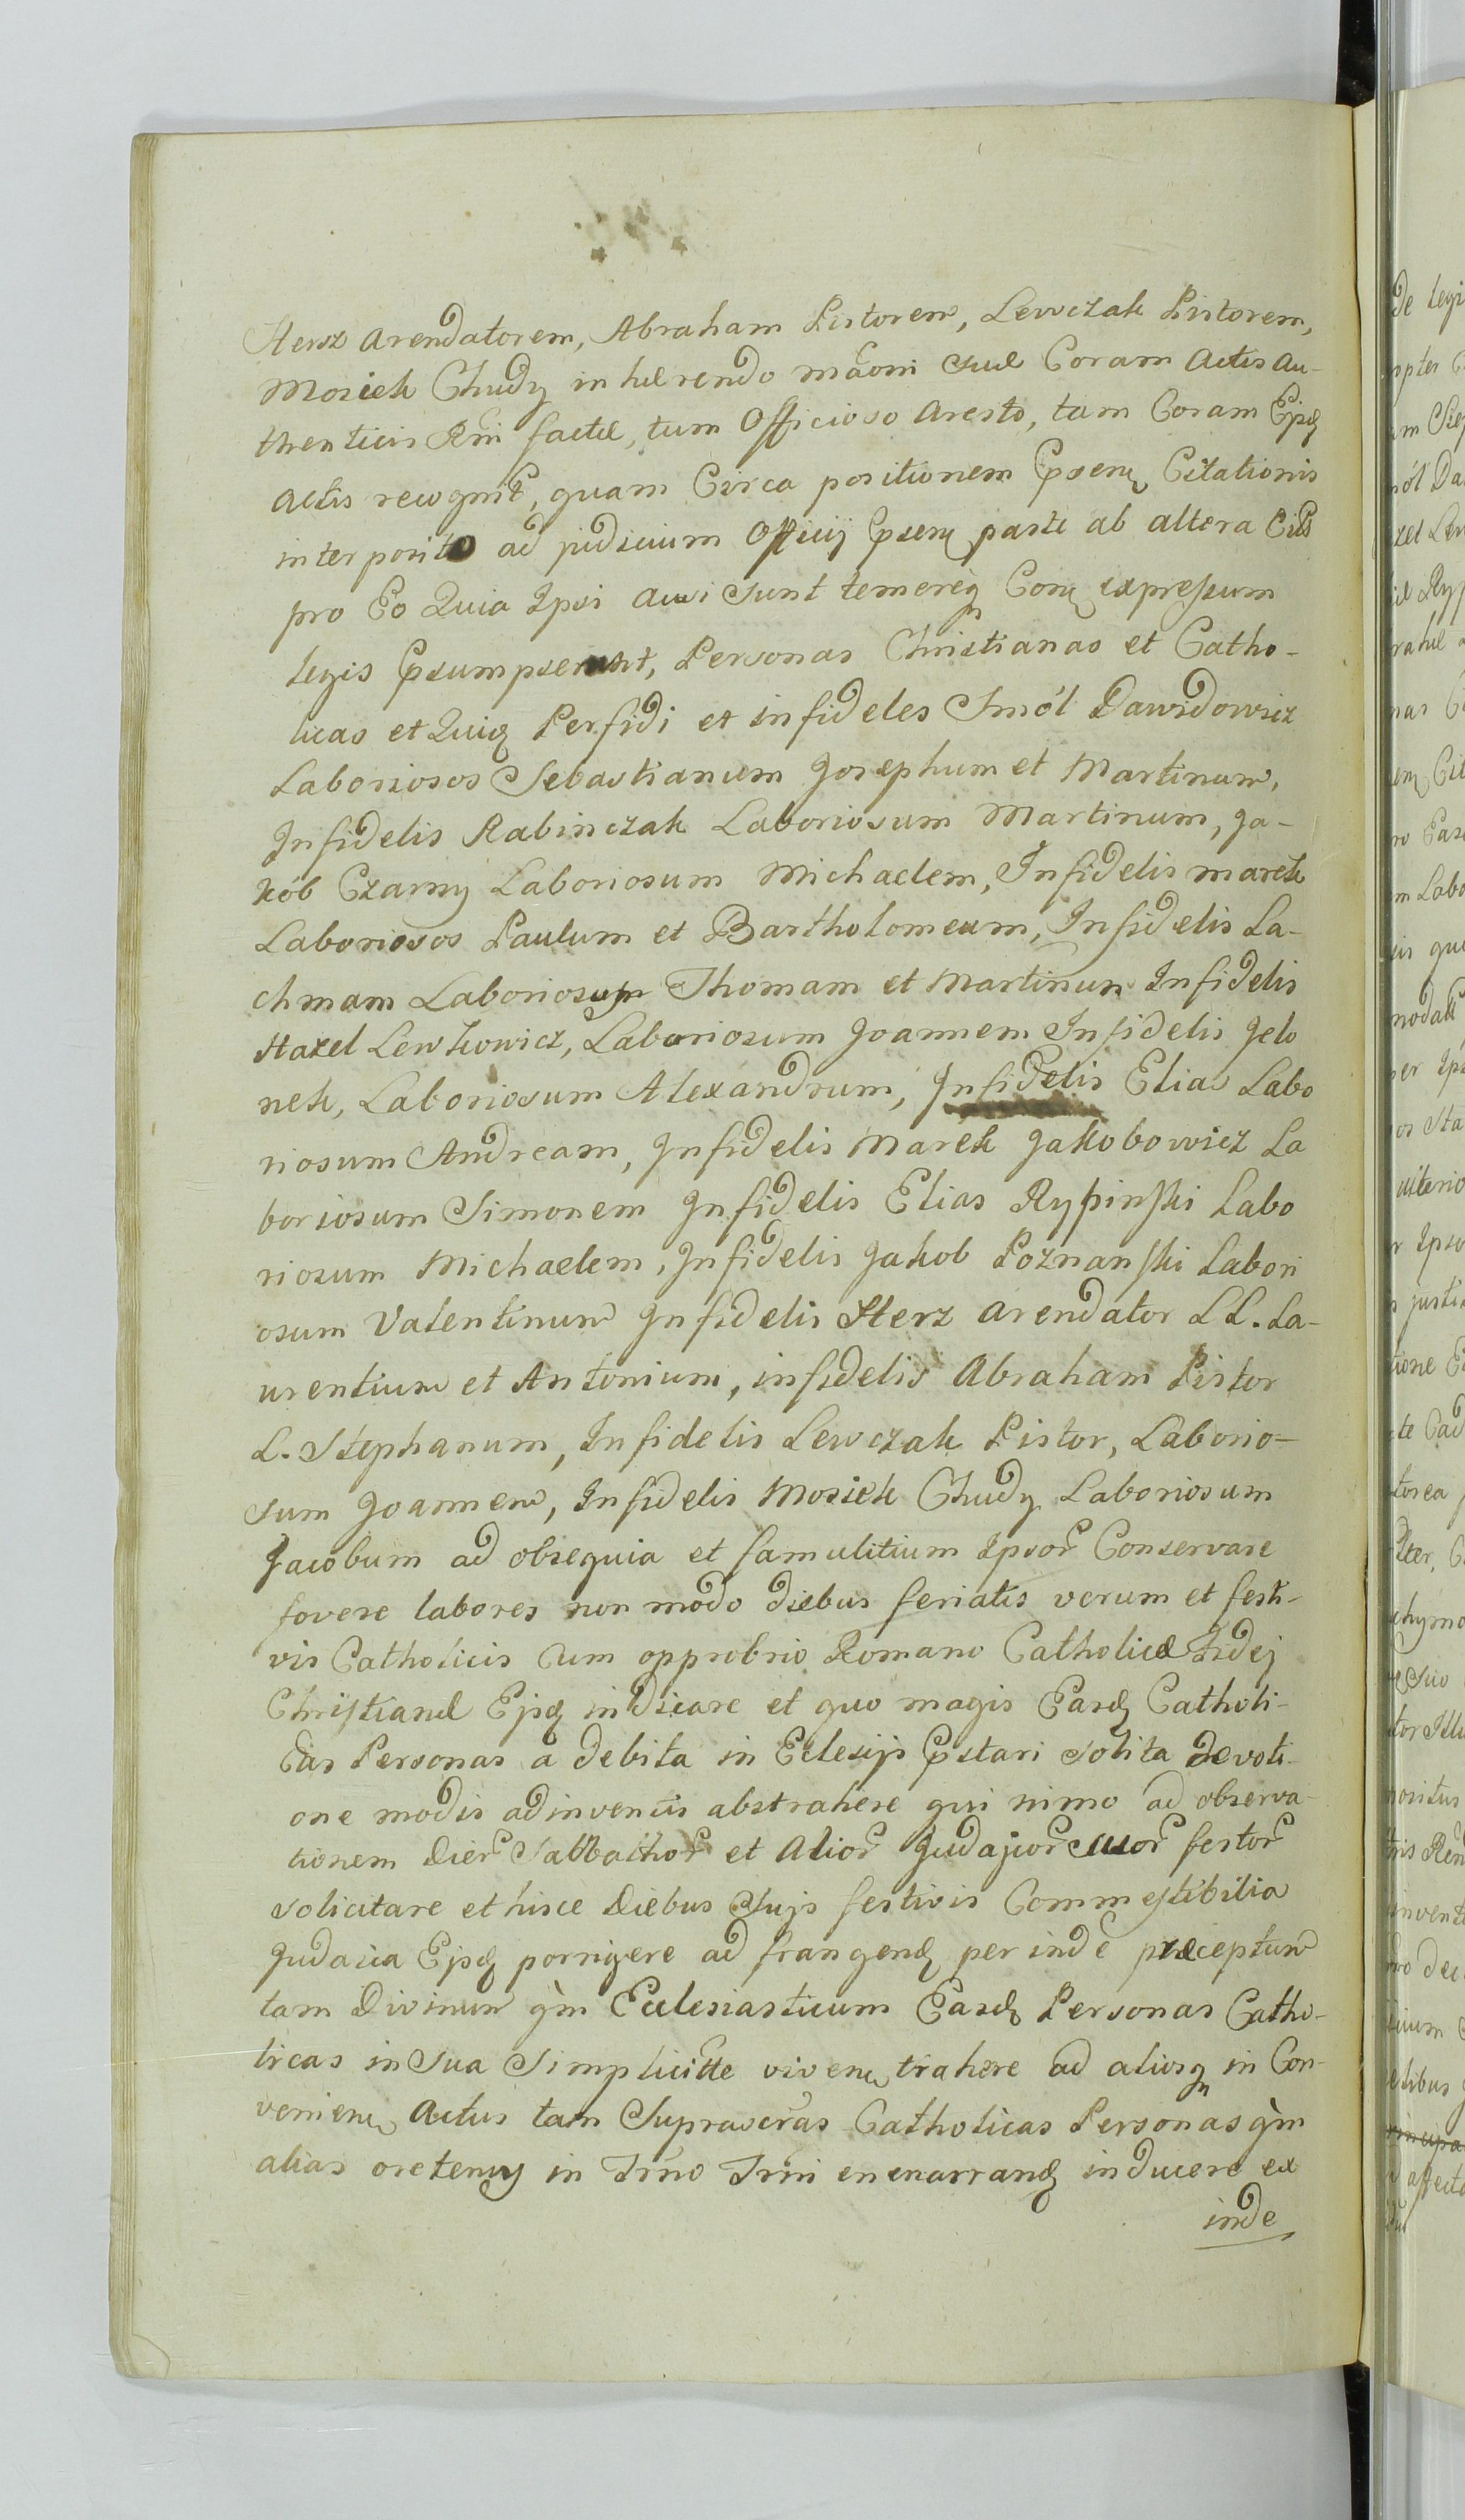 Hersz arendatorem, Abraham Pistorem, Lewczak Pistorem,
Mosiek Chudy inhærendo mãoni suæ Coram Actis Au-
thenticis Rñi factæ, tum Officioso Aresto, tam Coram Ejsdę
Actis recognit̃, quam Circa positionem Ꝓsenę Citationis
interposito ad judicium Officij Ꝓsenę parte ab altera Citt̃s
pro Eo Quia Ipsi Ausi sunt temereq̃ Conę expressum
legis Ꝓsumpserunt, Personas Christianas et Catho-
licas et Quidę Perfidi et infideles Smól Dawidowicz
Laboriosos Sebastianum Josephum et Martinum,
Infidelis Rabinczak Laboriosum Martinum, Ja-
kób Czarny Laboriosum Michaelem, Infidelis marek
Laboriosos Paulum et Bartholomeum, Infidelis La-
chmam Laboriosum Thomam et Martinum Infidelis
Haxel Lewkowicz, Laboriosum Joannem Infidelis Jelo
nek, Laboriosum Alexandrum, Infidelis Elias Labo
riosum Andream, Infidelis Marek Jakobowicz La
boriosum Simonem Infidelis Elias Rypinski Labo
riosum Michaelem, Infidelis Jakob Poznanski Labori
osum Valentinum Infidelis Herz arendator LL. La-
urentium et Antonium, infidelis Abraham Pistor
L. Stephanum, Infidelis Lewczak Pistor, Laborio-
sum Joannem, Infidelis Mosiek Chudy Laboriosum
Jacobum ad obsequia et famulitium Ipsor̃ Conservare
fovere labores non modo diebus feriatis verum et festi-
vis Catholicis Cum opprobrio Romano Catholicæ Fidej
Christianæ Ejsdę indicare et quo magis Easdę Catholi-
cas Personas a debita in Eclesijs Ꝓstari solita devoti-
one modis adinventis abstrahere qui nimo ad observa-
tionem Dier̃ Sabbathor̃ et Alior̃ Judajcor̃ suor̃ festor̃
solicitare et hisce Diebus Sujs festivis Commestibilia
Judaica Ejsdę porrigere ad frangendę per inde præceptum
tam Divinum q̃m Ecclesiasticum Easdę Personas Catho-
licas in sua Simplicitte vivenę trahere ad aliosq̃ in Con-
venienę Actus tam Suprascr̃as Catholicas Personas q̃m
alias oretenus in Trño Trñi enenarrandę inducere ex
inde